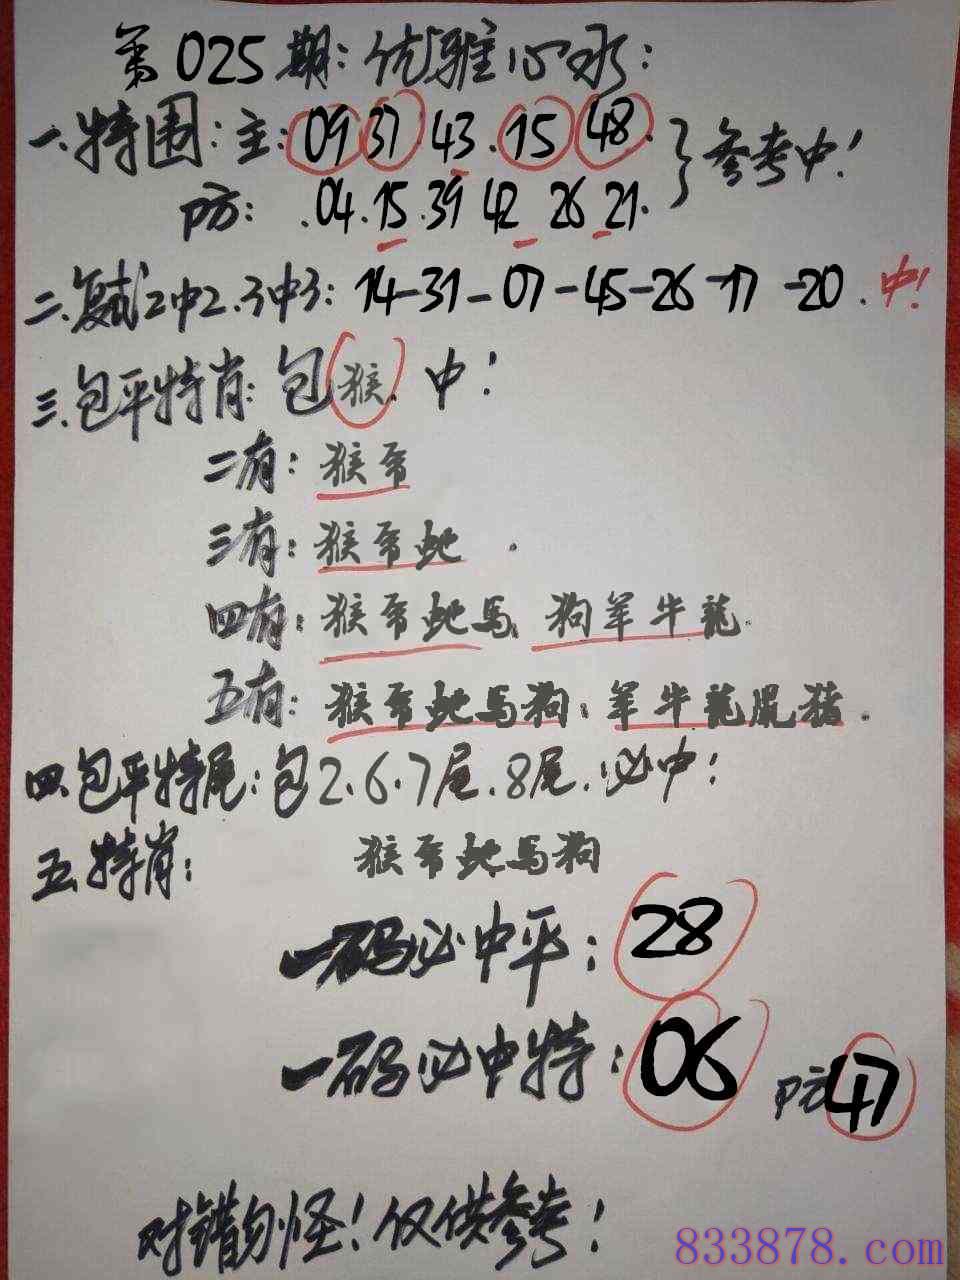 第025期:优雅心水:
一.特围:主:09 37.43.15 48.
防:.04.15.39 42 26 21.
参考中!
二.复试2中2.3中3:14-31-07-45-26-17-20.中!
三.包平特肖:包猴.中!
二有:猴
三有:猴 蛇.
四有:猴 蛇马.狗羊牛龍.
五有:猴 蛇马狗.羊牛龍鼠猪.
四.包平特尾:包2.6.7尾.8尾.必中!
五.特肖: 猴 蛇马狗
一码必中平:28
一码必中特:06 防47
对错勿怪!仅供参考!
833878.com